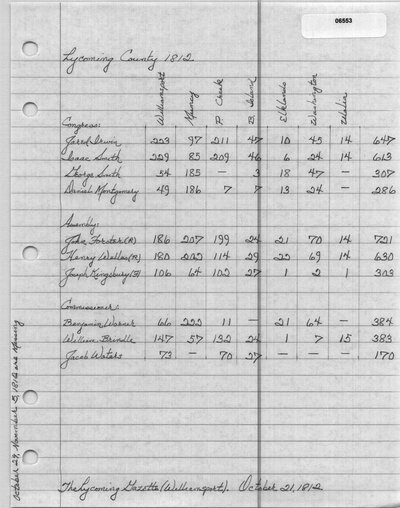 06553
Lycoming County 1812
Williamsport Muncy P. Creek B. Island Elklands Washington
Congress:
Jared Irwin 223 97 211 47 10 45 14 647
Isaac Smith 229 85 209 46 6 24 14 613
George Smith 54 185 — 3 18 47 — 307
Daniel Montgomery 49 186 7 7 13 24 — 286
Assembly:
John Forster(R) 186 207 199 24 21 70 14 721
Henry Wallas(R) 180 202 114 29 22 69 14 630
Joseph Kingsbury(F) 106 64 102 27 1 2 1 303
Commissioner:
Benjamin Warner 66 222 11 — 21 64 — 384
William Brindle 147 57 132 24 1 7 15 383
Jacob Waters 73 — 70 27 — — — 170
October 29, November 5, 1812 are missing
The Lycoming Gazette (Williamsport). October 21, 1812